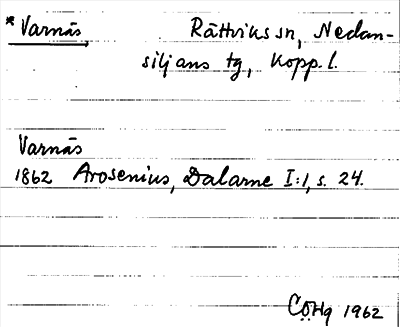 * Varnäs, Rättviks sn, Nedan-
siljans tg, Kopp. l.
Varnäs
1862 Arosenius, Dalarne I:1, s. 24.
CÖHg 1962